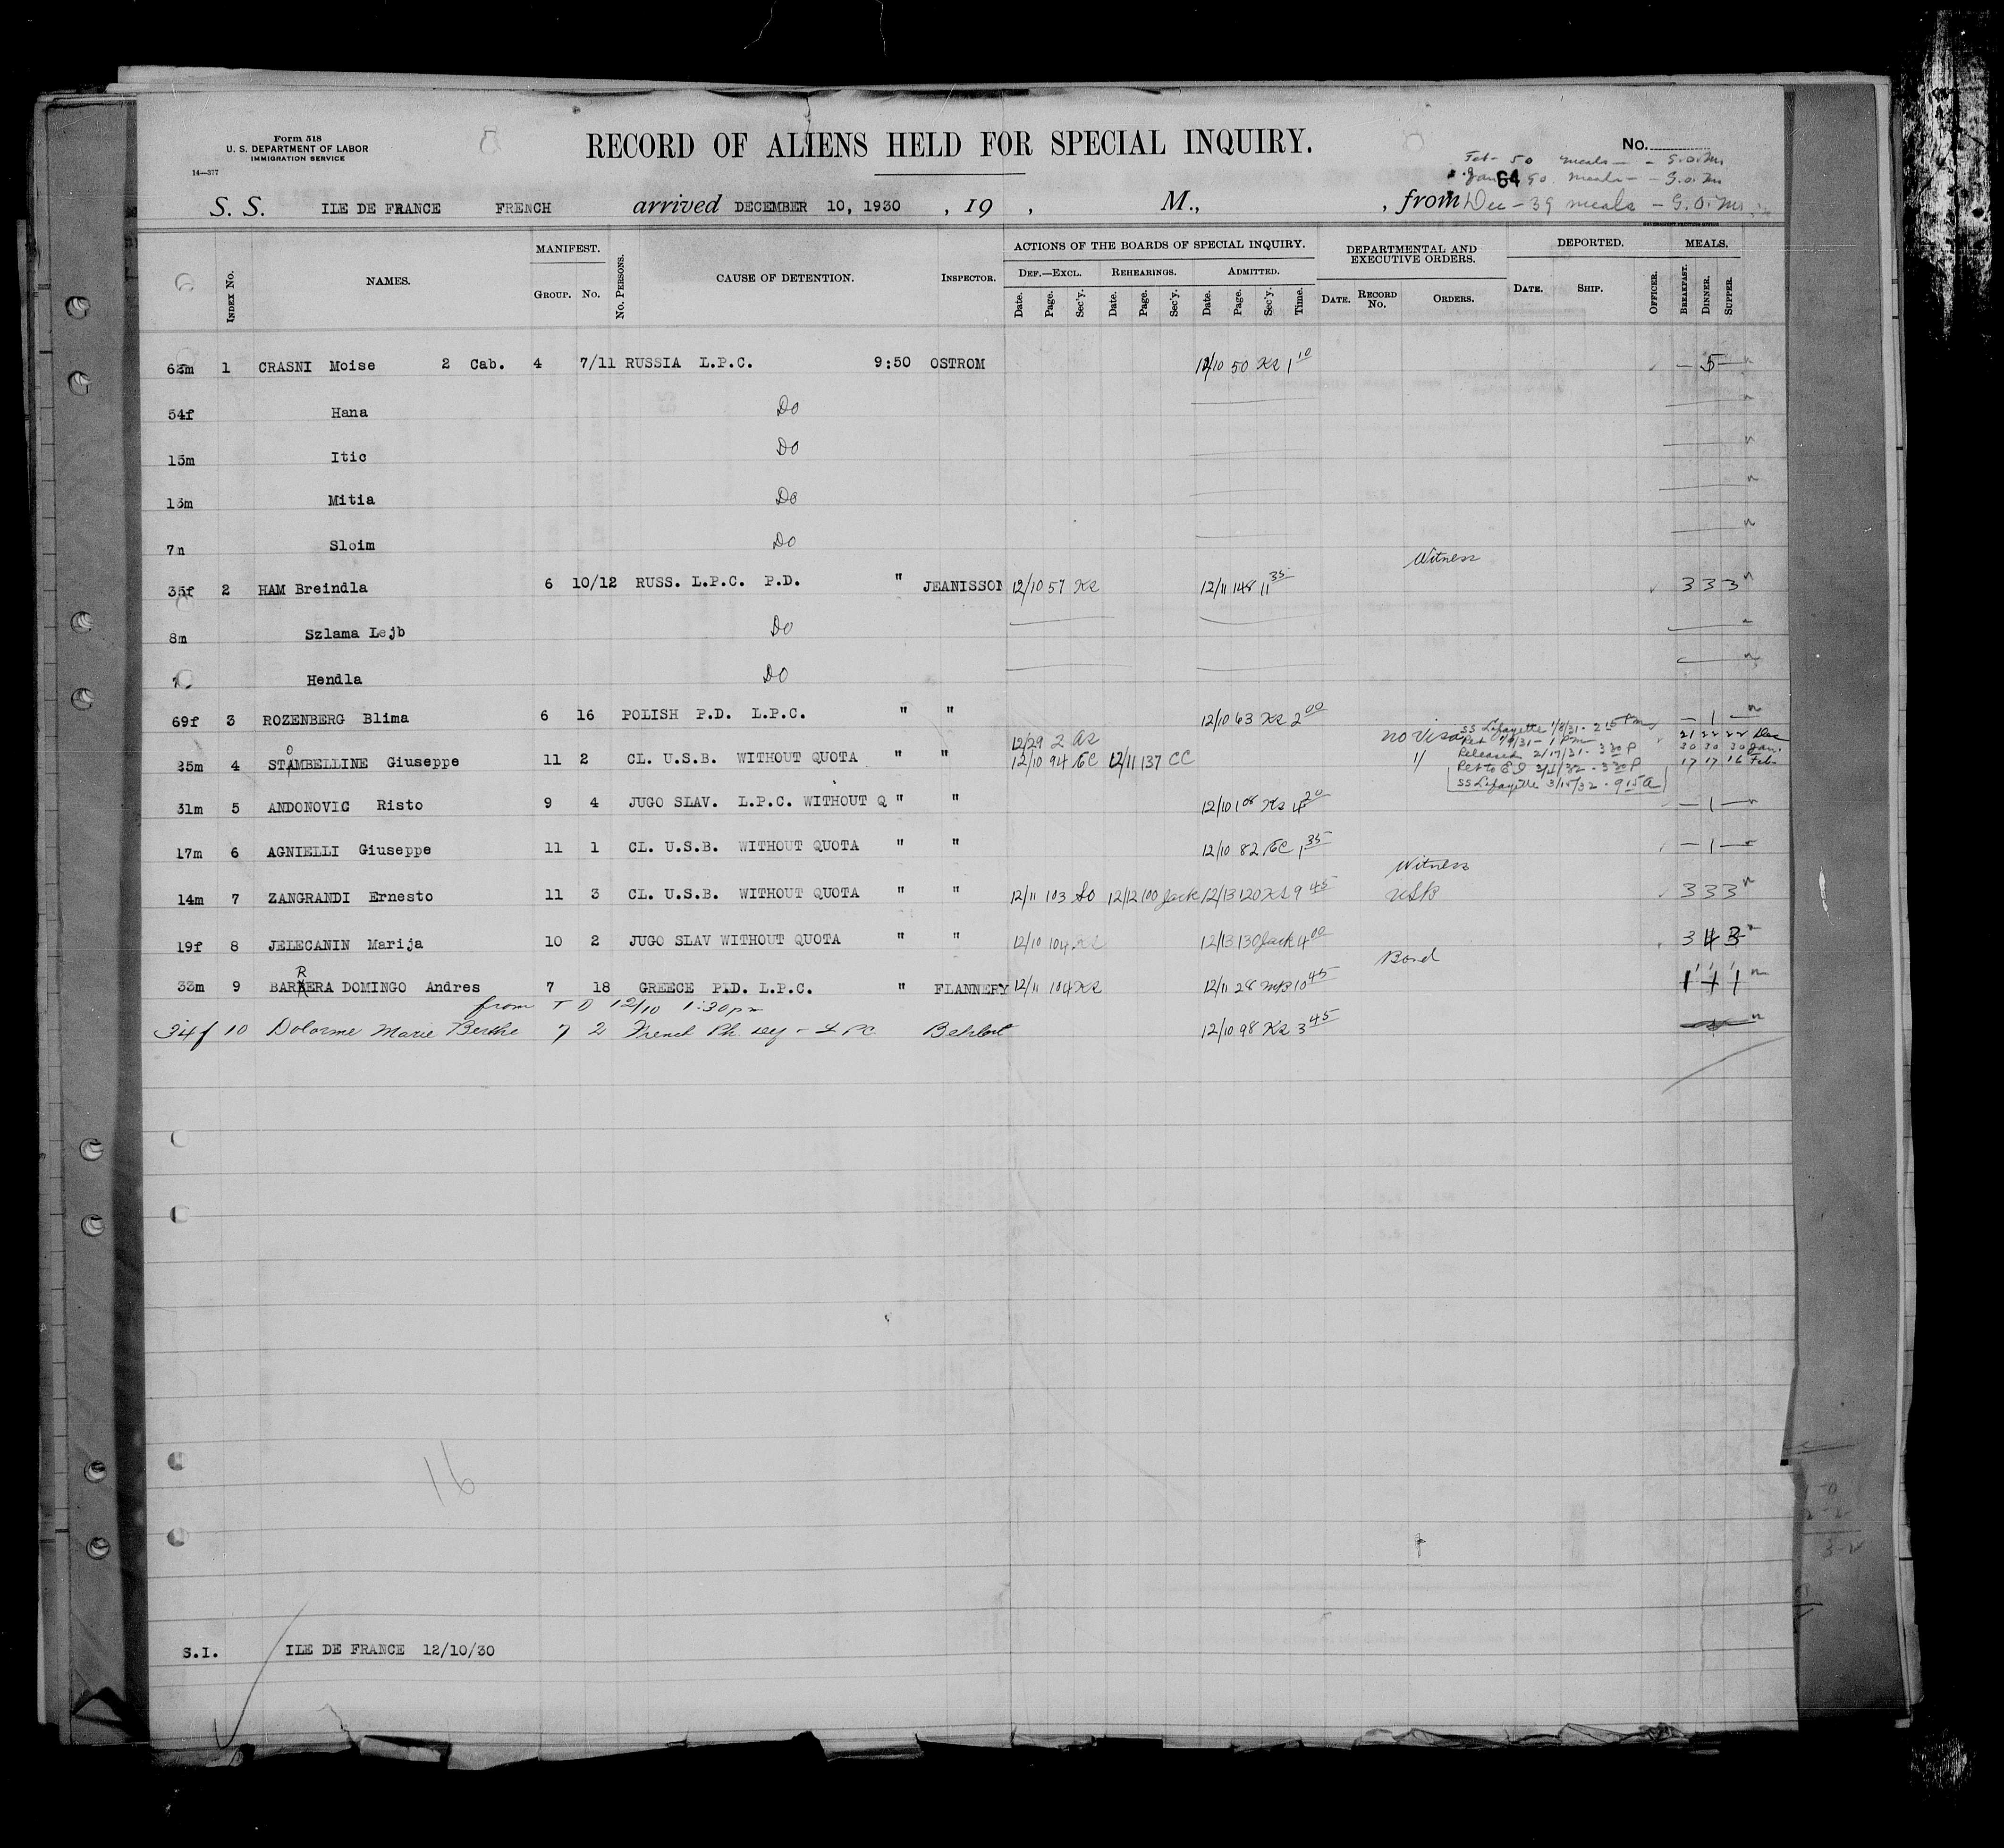 Form 518
U. S. DEPARTMENT OF LABOR
IMMIGRATION SERVICE
14—377
RECORD OF ALIENS HELD FOR SPECIAL INQUIRY.
No.
Feb- 50 meals — - S.O.M.
Jan 90 meals — - S.O.M.
64
S. S. ILE DE FRANCE FRENCH arrived DECEMBER 10, 1930 , 19 , M., , from Dec - 39 meals - S.O.M.
INDEX No. NAMES. MANIFEST. GROUP. No. No. PERSONS. CAUSE OF DETENTION. INSPECTOR. ACTIONS OF THE BOARDS OF SPECIAL INQUIRY. DEF.—EXCL. Date. Page. Sec'y. REHEARINGS. Date. Page. Sec'y. ADMITTED. Date. Page. Sec'y. Time. DEPARTMENTAL AND EXECUTIVE ORDERS. DATE. RECORD No. ORDERS. DEPORTED. DATE. SHIP. OFFICER. MEALS. BREAKFAST. DINNER. SUPPER.
1 CRASNI Moise 2 Cab. 4 7/11 RUSSIA L.P.C. 9:50 OSTROM 12/10 50 1 10 — 5 —
54f Hana Do
15m Itic Do
13m Mitia Do
7n Sloim Do
Witness
35f 2 HAM Breindla 6 10/12 RUSS. L.P.C. P.D. " JEANISSON 12/10 57 12/11 148 11 35 3 3 3
8m Szlama Lejb Do
Hendla Do
69f 3 ROZENBERG Blima 6 16 POLISH P.D. L.P.C. " " 12/10 63 2 00 — 1 —
12/29 2 no visa SS Lafayette 1/8/31 - 2 15 Pm 21 22 22 Dec
Ret 1/9/31 - 1 Pm 30 30 30 Jan.
35m 4 STAMBELLINE Giuseppe 11 2 CL. U.S.B. WITHOUT QUOTA " " 12/10 94 12/11 137 CC " Released 2/17/31 - 3 30 P 17 17 16 Feb
SS Lafayette 3/15/32 - 9 15 A
31m 5 ANDONOVIC Risto 9 4 JUGO SLAV. L.P.C. WITHOUT Q " " 12/10 108 4 20 — 1 —
17m 6 AGNIELLI Giuseppe 11 1 CL. U.S.B. WITHOUT QUOTA " " 12/10 82 1 35 — 1 —
Witness
14m 7 ZANGRANDI Ernesto 11 3 CL. U.S.B. WITHOUT QUOTA " " 12/11 103 12/12 100 Jack 12/13 120 9 45 3 3 3
19f 8 JELECANIN Marija 10 2 JUGO SLAV WITHOUT QUOTA " " 12/10 104 12/13 130 Jack 4 00 3 4 3
Bond
33m 9 BARRERA DOMINGO Andres 7 18 GREECE P.D. L.P.C. " FLANNERY 12/11 104 12/11 28 10 45 1 1 1
from T D 12/10 1:30 pm
34f 10 Delorme Marie Berthe 7 2 French Ph. - L P C. 12/10 98 3 45
16
S.I. ILE DE FRANCE 12/10/30